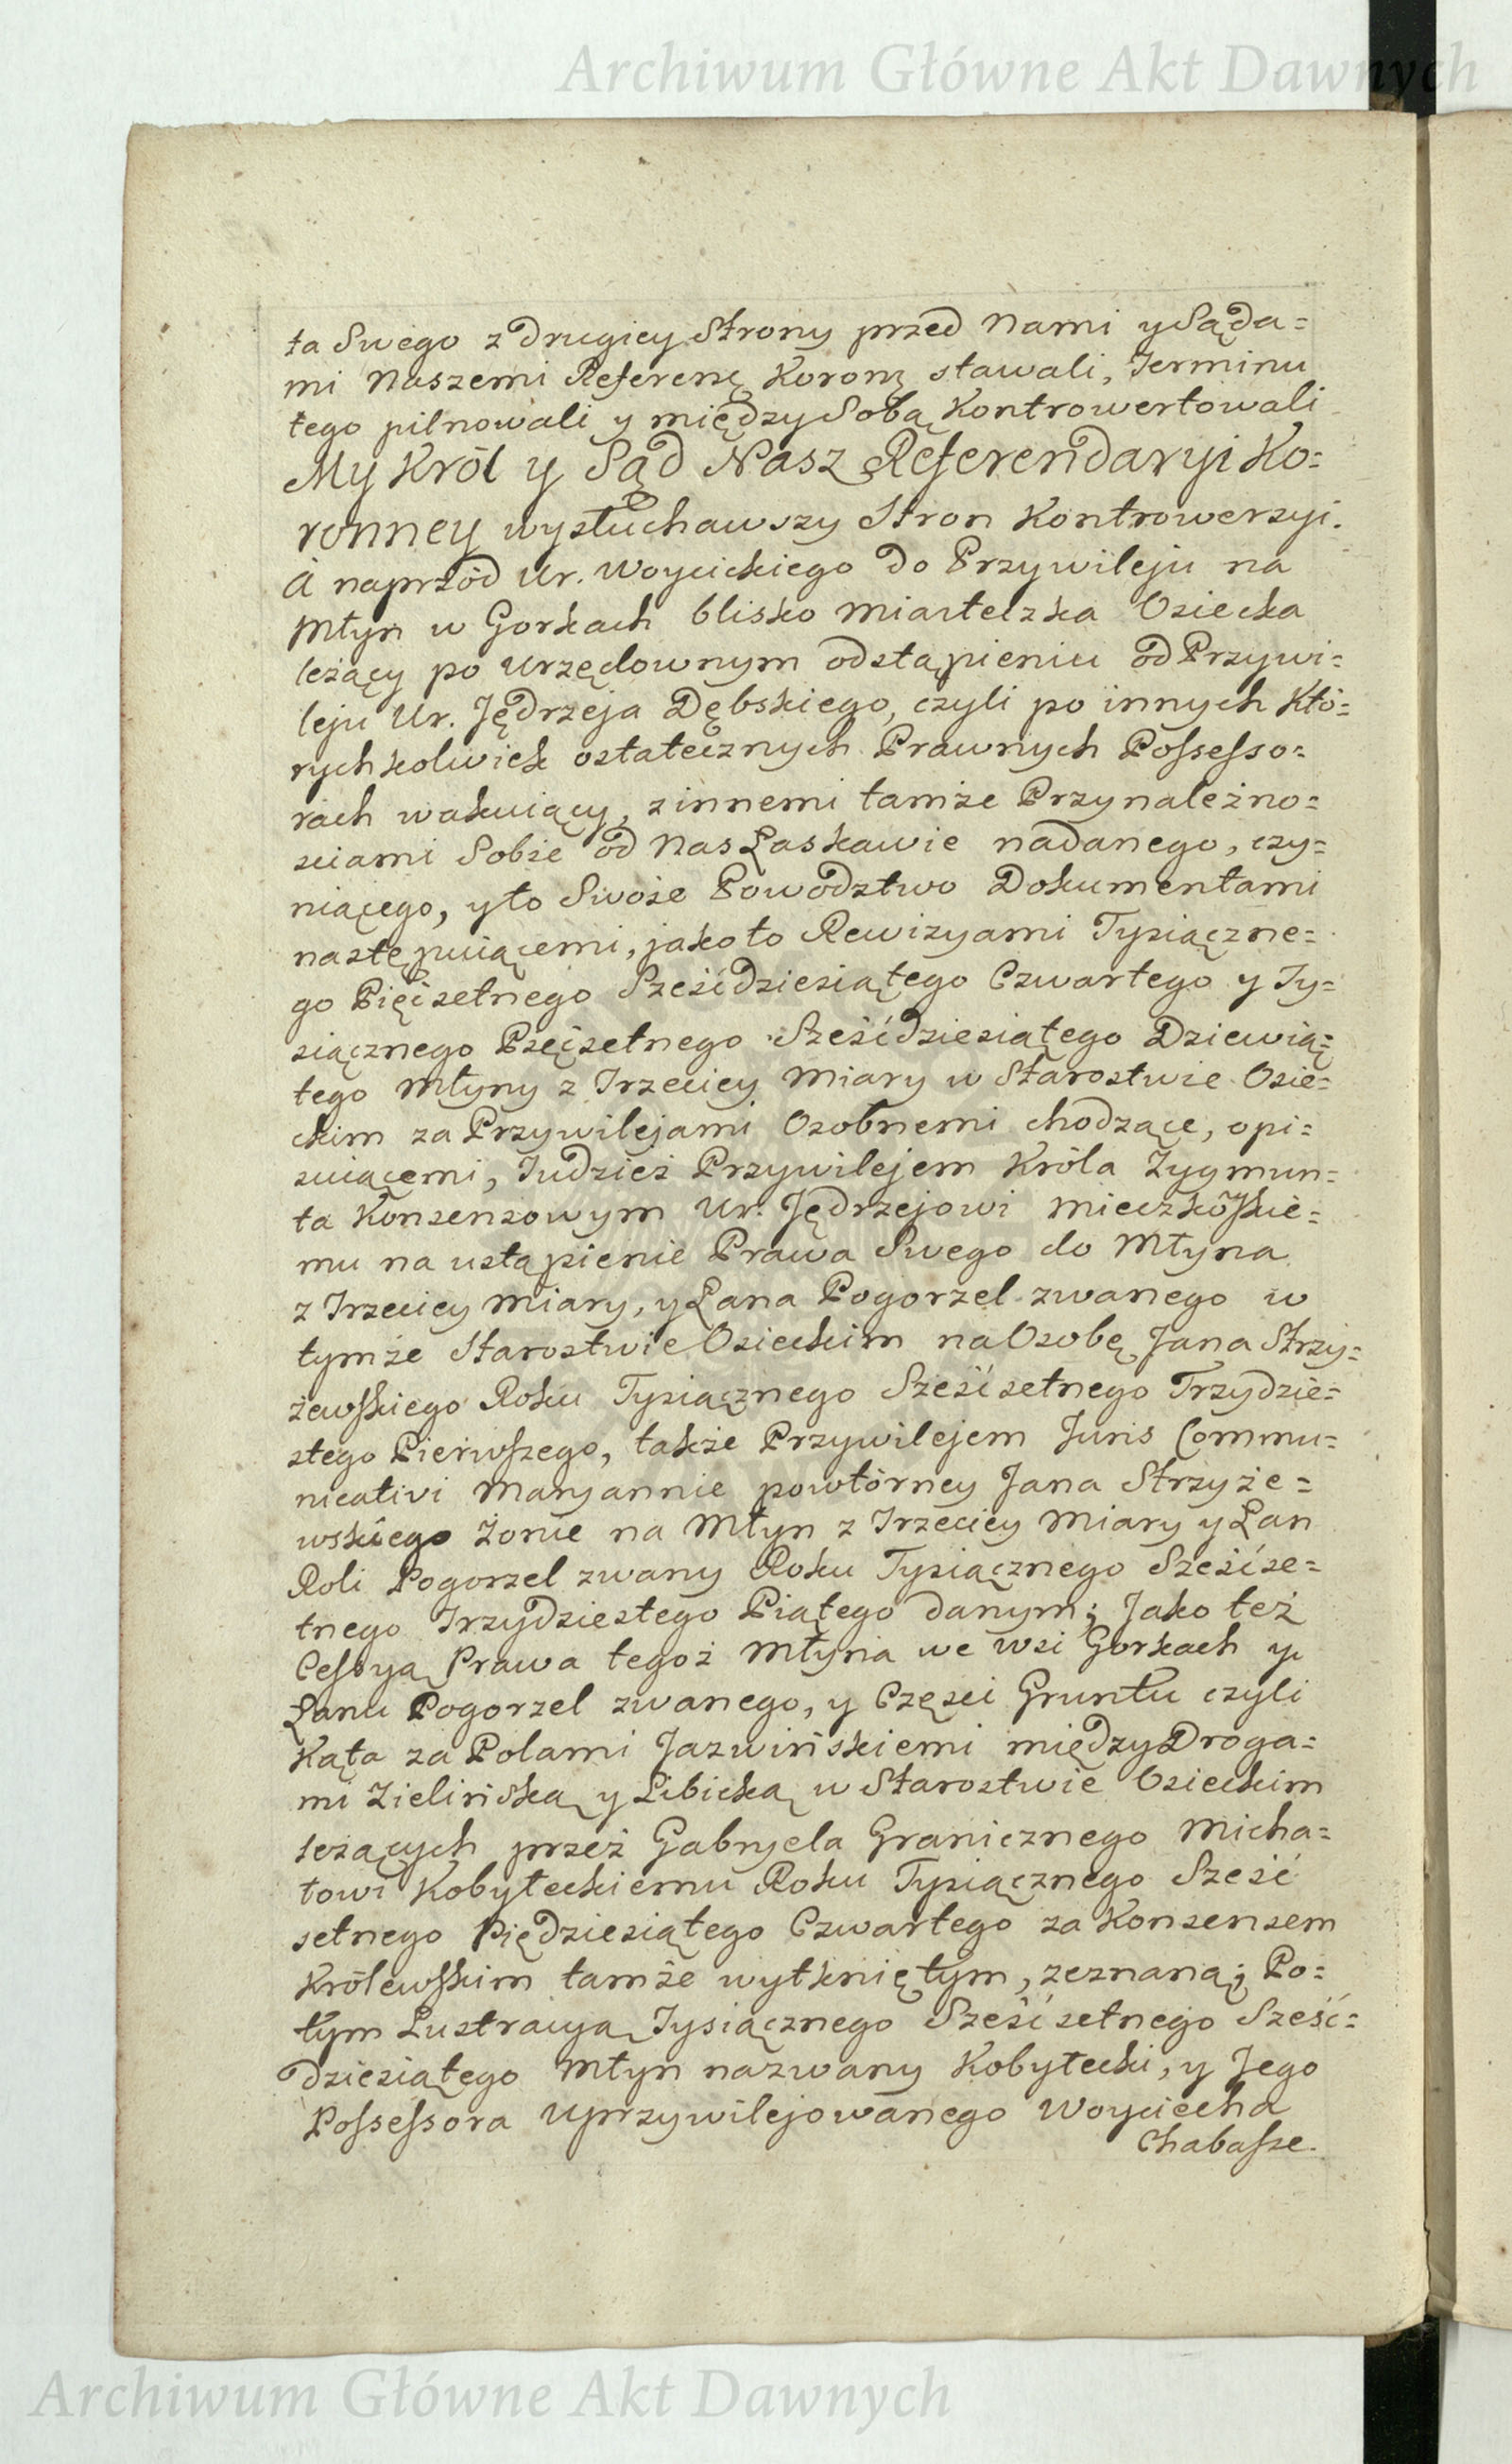 Archiwum Główne Akt Dawnych
ta Swego z drugiey Strony przed Nami y Sąda=
mi Naszemi Referenę Koronę stawali, Terminu
tego pilnowali y między Sobą Kontrowertowali
My Król y Sąd Nasz Referendaryi Ko=
ronney wysłuchawszy Stron Kontrowerzyi.
A naprzód Ur. Woycickiego do Przywileju na
Młyn w Gorkach blisko Miasteczka Osiecka
leżący po Urzędownym odstąpieniu od Przywi=
leju Ur. Jędrzeja Dębskiego, czyli po innych Któ=
rychkolwiek ostatecznych Prawnych Possesso=
rach wakuiący, z innemi tamże Przynależno=
sciami Sobie od Nas Łaskawie nadanego, czy=
niącego, y to Swoie Powodztwo Dokumentami
następuiącemi, jako to Rewizyami Tysiączne=
go Pięćsetnego Sześćdziesiątego Czwartego y Ty=
siącznego Pięćsetnego Sześćdziesiątego Dziewią=
tego Młyny z Trzeciey Miary w Starostwie Osie=
ckim za Przywilejami Osobnemi chodzące, opi=
suiącemi, Tudzież Przywilejem Króla Zygmun=
ta Konsensowym Ur. Jędrzejowi Mieczkoskie=
mu na ustąpienie Prawa Swego do Młyna
z Trzeciey Miary, y Łana Pogorzel zwanego w
tymże Starostwie Osieckim na Osobę Jana Strzy=
żewskiego Roku Tysiącznego Sześćsetnego Trzydzie=
stego Pierwszego, także Przywilejem Juris Commu=
nicativi Maryannie powtórney Jana Strzyże=
wskiego Żonie na Młyn z Trzeciey Miary y Łan
Roli Pogorzel zwany Roku Tysiącznego Sześćse=
tnego Trzydziestego Piątego danym; Jako też
Cessyą Prawa tegoż Młyna we wsi Gorkach y
Łanu Pogorzel zwanego, y Części Gruntu czyli
Kąta za Polami Jazwińskiemi między Droga=
mi Zielińską y Libicką w Starostwie Osieckim
leżących przez Gabryela Granicznego Micha=
łowi Kobyłeckiemu Roku Tysiącznego Sześć
setnego Piędziesiątego Czwartego za Konsensem
Królewskim tamże wytkniętym, zeznaną; Po=
tym Lustracyą Tysiącznego Sześćsetnego Sześć=
dziesiątego Młyn nazwany Kobyłecki, y Jego
Possessora Uprzywilejowanego Woyciecha
Chabasze.
Archiwum Główne Akt Dawnych